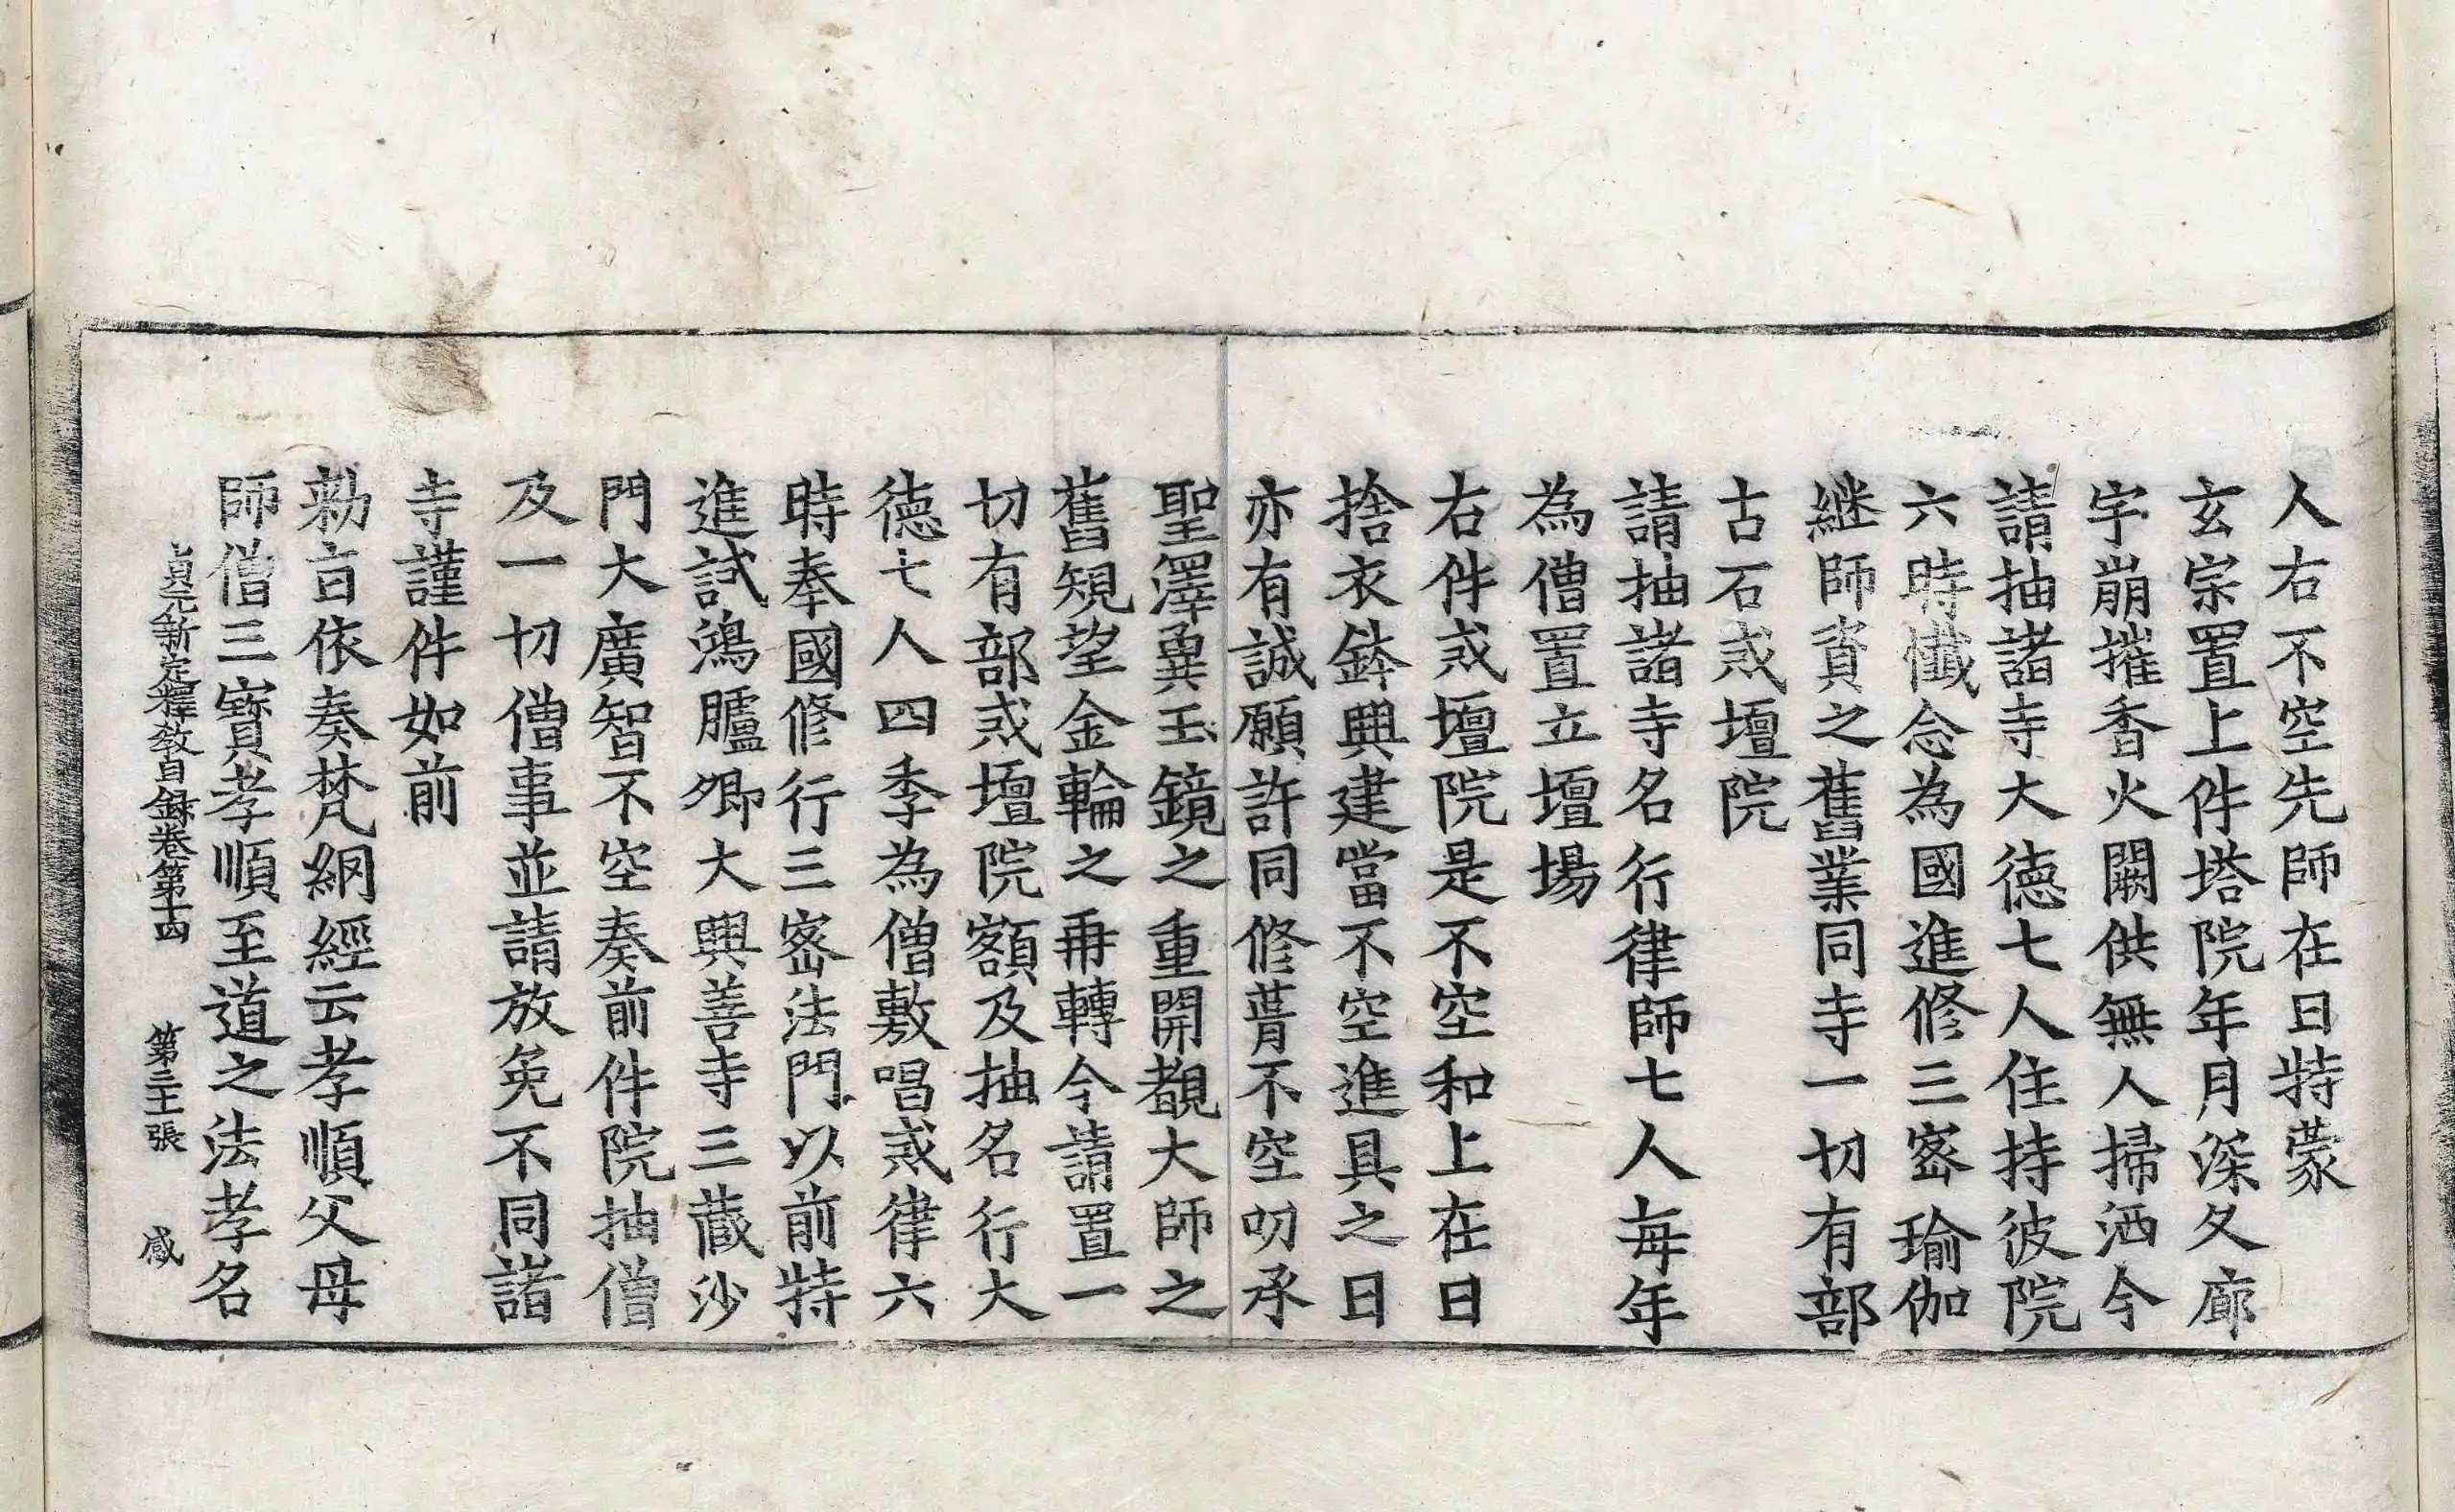 人右不空先師在日特蒙
玄宗置上件塔院年月深久廊
宇崩摧香火闕供無人掃洒今
請抽諸寺大徳七人住持彼院
六時懺念為國進修三宻瑜伽
継師資之舊業同寺一切有部
古石戒壇院
請抽諸寺名行律師七人每年
為僧置立壇場
右件戒壇院是不空和上在日
捨衣鉢興建當不空進具之日
亦有誠願許同修葺不空叨承
聖澤冀玉鏡之重開覩大師之
舊䂓望金輪之再轉今請置一
切有部戒壇院額及抽名行大
徳七人四季為僧敷唱戒律六
時奉國修行三宻法門以前特
進試鴻臚卿大興善寺三藏沙
門大廣智不空奏前件院抽僧
及一切僧事並請放免不同諸
寺謹件如前
勑㫖依奏梵網經云孝順父母
師僧三寳孝順至道之法孝名
貞元新定釋教目録卷第十四 第三十張 感